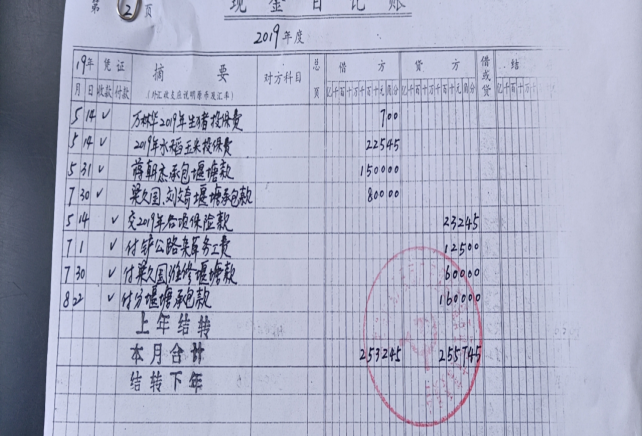 第 2 页
现金日记账
2019年度
19年 凭证 摘要 对方科目 总页 借方 贷方 借或贷 结
月 日 收款 付款 (外汇收支应说明原币及汇率) 亿千百十万千百十元角分 亿千百十万千百十元角分 亿千百十万千百十
5 14 ✓ 万林华2019年生猪投保费 700
5 14 ✓ 2019年水稻玉米投保费 22545
5 31 ✓ 蒋朝杰承包堰塘款 150000
7 30 ✓ 梁久国、刘文奇堰塘承包款 80000
5 14 ✓ 交2019年各项保险款 23245
7 1 ✓ 付铲公路杂草务工费 12500
7 30 ✓ 付梁久国维修堰塘款 60000
8 22 ✓ 付分堰塘承包款 160000
上年结转
本月合计 253245 255745
结转下年